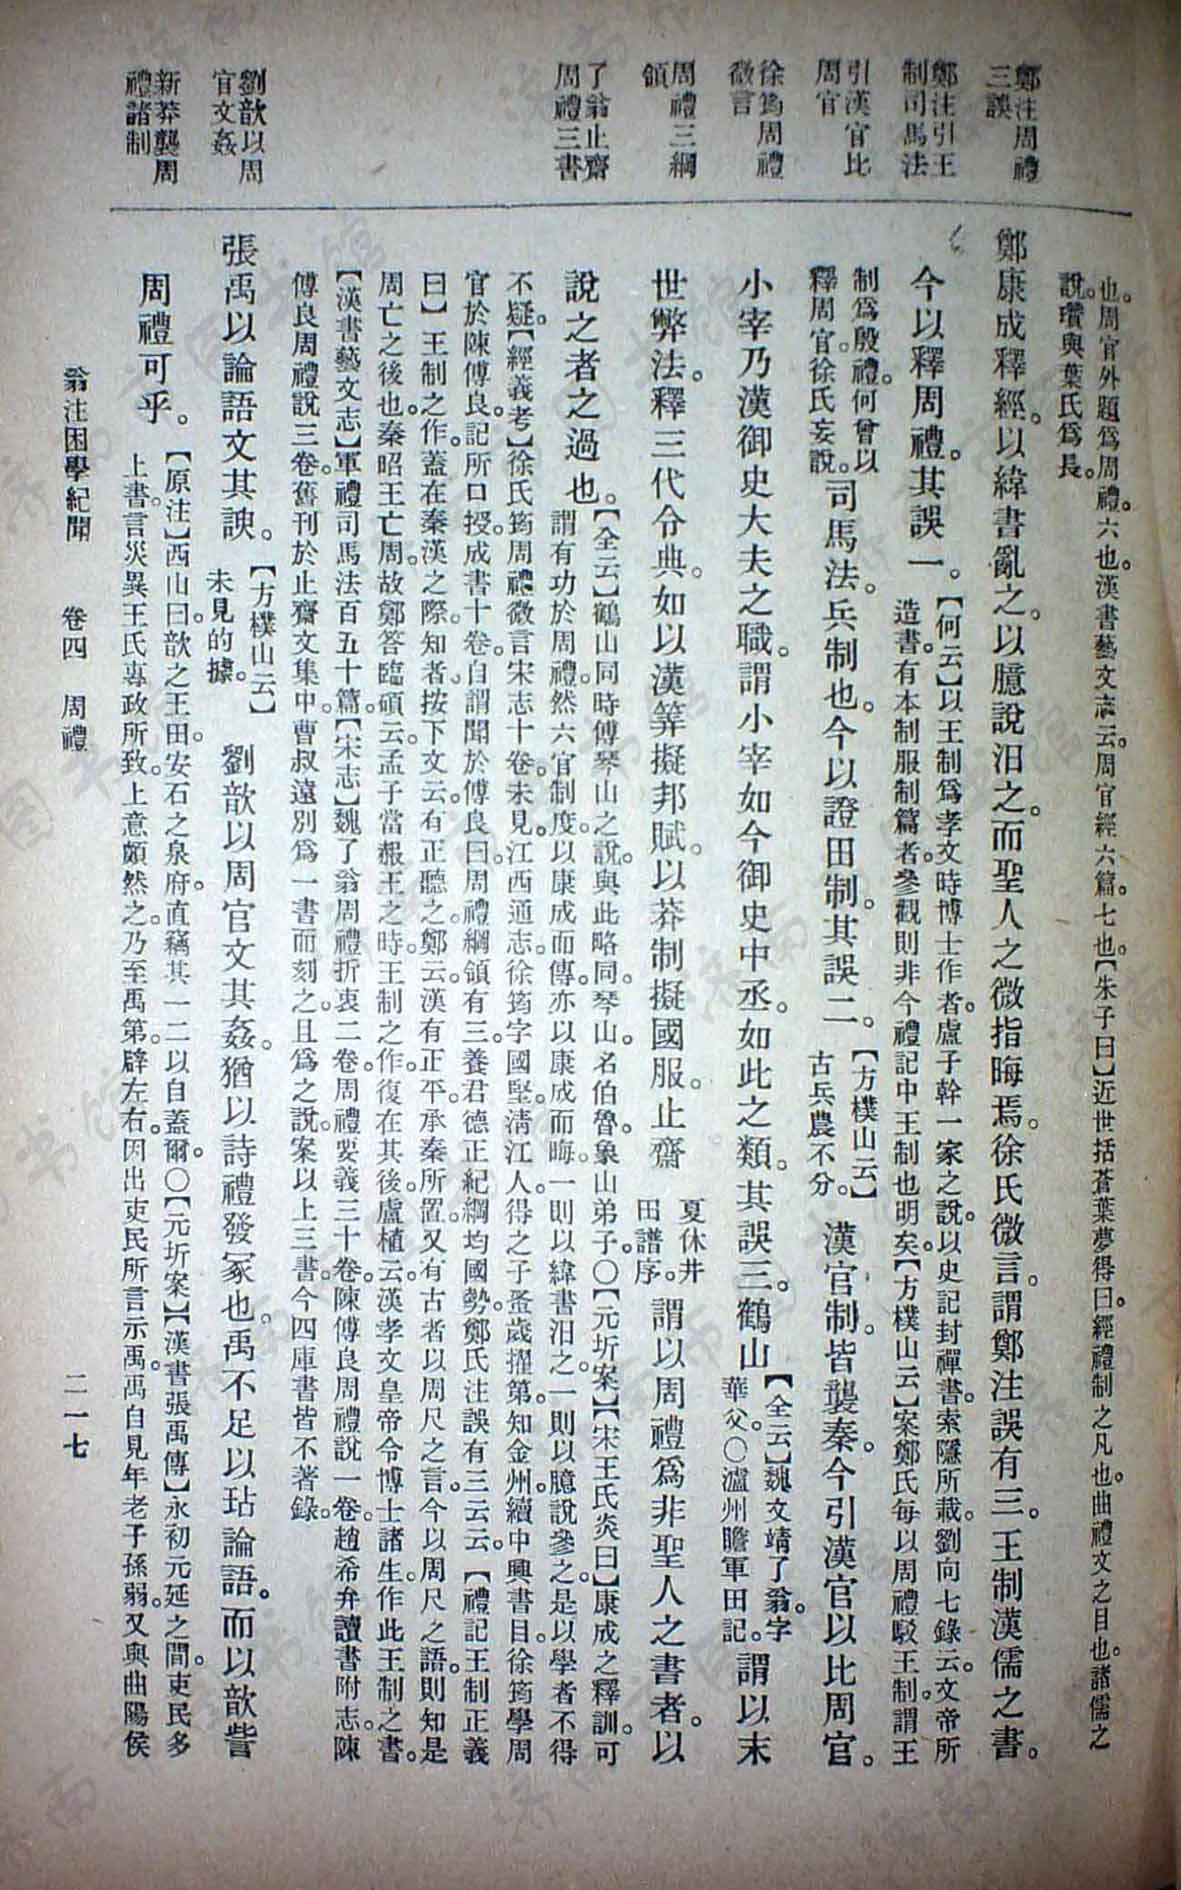 鄭注周禮
三誤
鄭注引王
制司馬法
引漢官比
周官
徐筠周禮
微言
周禮三綱
領
了翁止齋
周禮三書
劉歆以周
官文姦
新莽襲周
禮諸制
也。周官外題爲周禮。六也。漢書藝文志云。周官經六篇。七也。【朱子曰】近世括蒼葉夢得曰。經禮制之凡也。曲禮文之目也。諸儒之
說。瓚與葉氏爲長。
鄭康成釋經。以緯書亂之。以臆說汨之。而聖人之微指晦焉。徐氏微言。謂鄭注誤有三。王制漢儒之書。
今以釋周禮。其誤一。
【何云】以王制爲孝文時博士作者。盧子幹一家之說。以史記封禪書。索隱所載。劉向七錄云。文帝所
造書。有本制服制篇者。參觀則非今禮記中王制也明矣。【方樸山云】案鄭氏每以周禮駁王制。謂王
制爲殷禮。何曾以
釋周官。徐氏妄說。
司馬法。兵制也。今以證田制。其誤二。
【方樸山云】
古兵農不分。
漢官制。皆襲秦。今引漢官以比周官。
小宰乃漢御史大夫之職。謂小宰如今御史中丞。如此之類。其誤三。鶴山
【全云】魏文靖了翁。字
華父。○瀘州贍軍田記。
謂以末
世弊法。釋三代令典。如以漢筭擬邦賦。以莽制擬國服。止齋
夏休井
田譜序。
謂以周禮爲非聖人之書者。以
說之者之過也。
【全云】鶴山同時傅琴山之說。與此略同。琴山。名伯魯。象山弟子。○【元圻案】【宋王氏炎曰】康成之釋訓。可
謂有功於周禮。然六官制度。以康成而傳。亦以康成而晦。一則以緯書汨之。一則以臆說參之。是以學者不得
不疑。【經義考】徐氏筠周禮微言宋志十卷。未見。江西通志。徐筠字國堅。清江人。得之子。登歲擢第。知金州。續中興書目。徐筠學周
官於陳傅良。記所口授。成書十卷。自謂聞於傅良曰。周禮綱領有三。養君德正紀綱均國勢。鄭氏注誤有三云云。【禮記王制正義
曰】王制之作。蓋在秦漢之際。知者。按下文云。有正聽之。鄭云。漢有正平。承秦所置。又有古者以周尺之言。今以周尺之語。則知是
周亡之後也。秦昭王亡周。故鄭答臨碩云。孟子當赧王之時。王制之作。復在其後。盧植云。漢孝文皇帝令博士諸生。作此王制之書。
【漢書藝文志】軍禮司馬法百五十篇。【宋志】魏了翁周禮折衷二卷。周禮要義三十卷。陳傅良周禮說一卷。趙希弁讀書附志。陳
傅良周禮說三卷。舊刊於止齋文集中。曹叔遠別爲一書而刻之。且爲之說。案以上三書。今四庫書皆不著錄。
張禹以論語文其諛。
【方樸山云】
未見的據。
劉歆以周官文其姦。猶以詩禮發冢也。禹不足以玷論語。而以歆訾
周禮可乎。
【原注】西山曰。歆之王田。安石之泉府。直竊其一二以自蓋爾。○【元圻案】【漢書張禹傳】永初元延之間。吏民多
上書。言災異王氏專政所致。上意頗然之。乃至禹第。辟左右。因出吏民所言示禹。禹自見年老子孫弱。又與曲陽侯
翁注困學紀聞　卷四　周禮　二一七